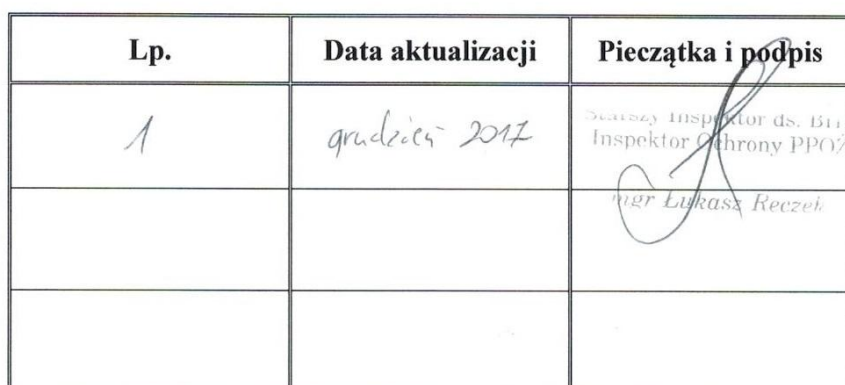 Lp. Data aktualizacji Pieczątka i podpis
1 grudzień 2017 Starszy Inspektor ds. BH
Inspektor Ochrony PPOŻ
mgr Łukasz Reczek